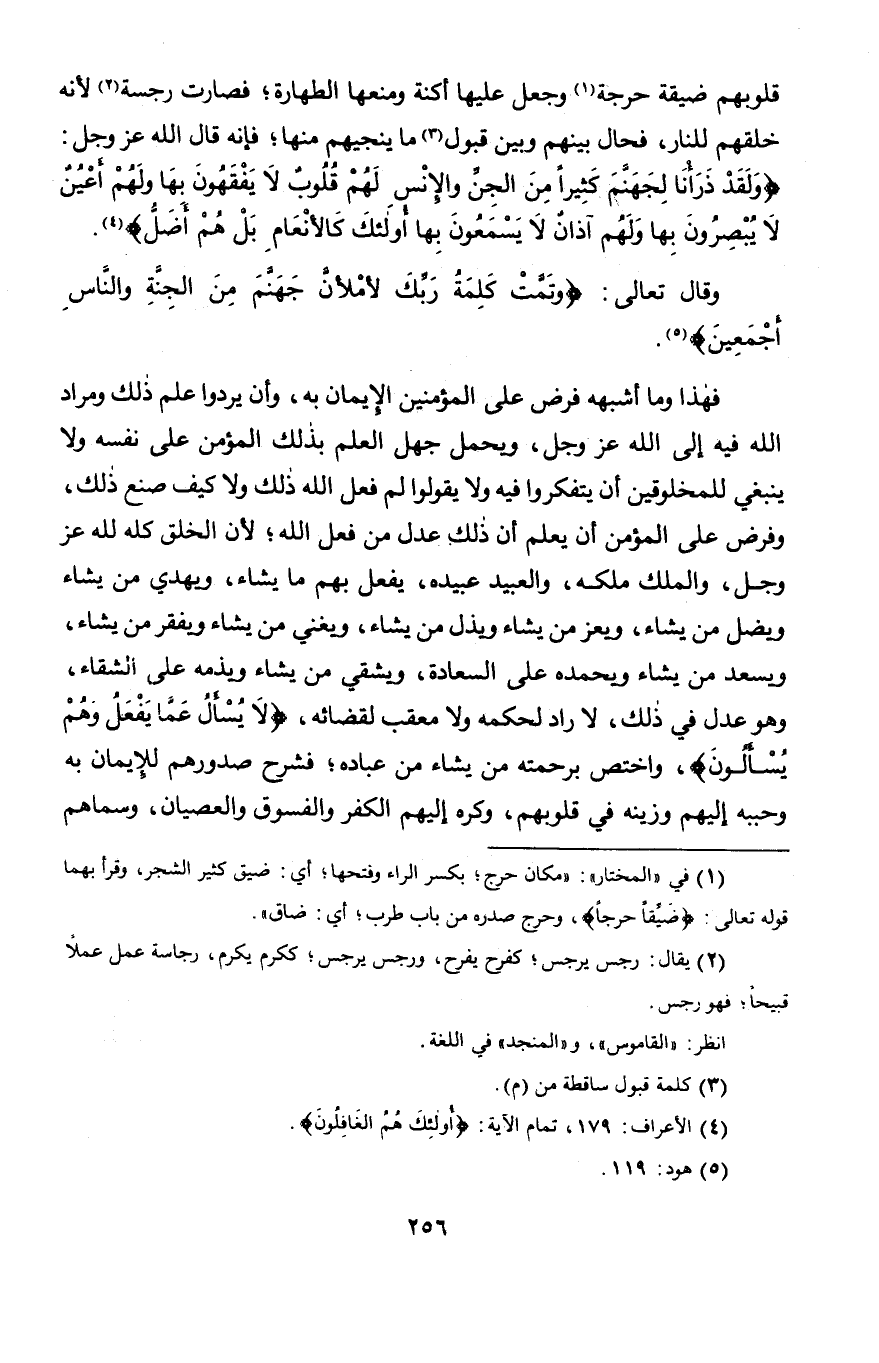 قلوبهم ضيقة حرجة(١) وجعل عليها أكنة ومنعها الطهارة؛ فصارت رجسة(٢) لأنه
خلقهم للنار، فحال بينهم وبين قبول(٣) ما ينجيهم منها؛ فإنه قال الله عز وجل:
﴿وَلَقَدْ ذَرَأْنَا لِجَهَنَّمَ كَثِيراً مِنَ الجنِّ والإِنْسِ لَهُمْ قُلُوبٌ لَا يَفْقَهُونَ بِهَا ولَهُمْ أَعْيُنٌ
لَا يُبْصِرُونَ بِها وَلَهُم آذانٌ لَا يَسْمَعُونَ بِها أُولٰئكَ كَالأنْعَامِ بَلْ هُمْ أَضَلُّ﴾(٤).
وقال تعالى: ﴿وتَمَّتْ كَلِمَةُ رَبِّكَ لأمْلأنَّ جَهَنَّمَ مِنَ الجِنَّةِ والنَّاسِ
أَجْمَعِينَ﴾(٥).
فهٰذا وما أشبهه فرض على المؤمنين الإيمان به، وأن يردوا علم ذٰلك ومراد
الله فيه إلى الله عز وجل، ويحمل جهل العلم بذٰلك المؤمن على نفسه ولا
ينبغي للمخلوقين أن يتفكروا فيه ولا يقولوا لم فعل الله ذٰلك ولا كيف صنع ذٰلك،
وفرض على المؤمن أن يعلم أن ذٰلك عدل من فعل الله؛ لأن الخلق كله لله عز
وجـل، والملك ملكـه، والعبيد عبيده، يفعل بهم ما يشاء، ويهدي من يشاء
ويضل من يشاء، ويعز من يشاء ويذل من يشاء، ويغني من يشاء ويفقر من يشاء،
ويسعد من يشاء ويحمده على السعادة، ويشقي من يشاء ويذمه على الشقاء،
وهو عدل في ذٰلك، لا راد لحكمه ولا معقب لقضائه، ﴿لَا يُسْأَلُ عَمَّا يَفْعَلُ وَهُمْ
يُسْـأَلُـونَ﴾، واختص برحمته من يشاء من عباده؛ فشرح صدورهم للإيمان به
وحببه إليهم وزينه في قلوبهم، وكره إليهم الكفر والفسوق والعصيان، وسماهم
(١) في «المختار»: «مكان حرج؛ بكسر الراء وفتحها؛ أي: ضيق كثير الشجر، وقرأ بهما
قوله تعالى: ﴿ضَيِّقاً حرجاً﴾، وحرج صدره من باب طرب؛ أي: ضاق».
(٢) يقال: رجس يرجس؛ كفرح يفرح، ورجس يرجس؛ ككرم يكرم، رجاسة عمل عملاً
قبيحاً؛ فهو رجس.
انظر: «القاموس»، و«المنجد» في اللغة.
(٣) كلمة قبول ساقطة من (م).
(٤) الأعراف: ١٧٩، تمام الآية: ﴿أُولٰئِكَ هُمُ الغَافِلُونَ﴾.
(٥) هود: ١١٩.
٢٥٦